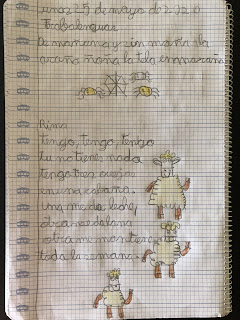 Lunes 25 de mayo de 2020
Trabalenguas
De mañana y sin maña la
araña maña la tela enmaraña
Rima
Tengo, tengo, tengo
tu no tienes nada
tengo tres ovejas
en una cabaña.
Una me da leche,
otra me da lana
otra me mantiene
toda la semana.